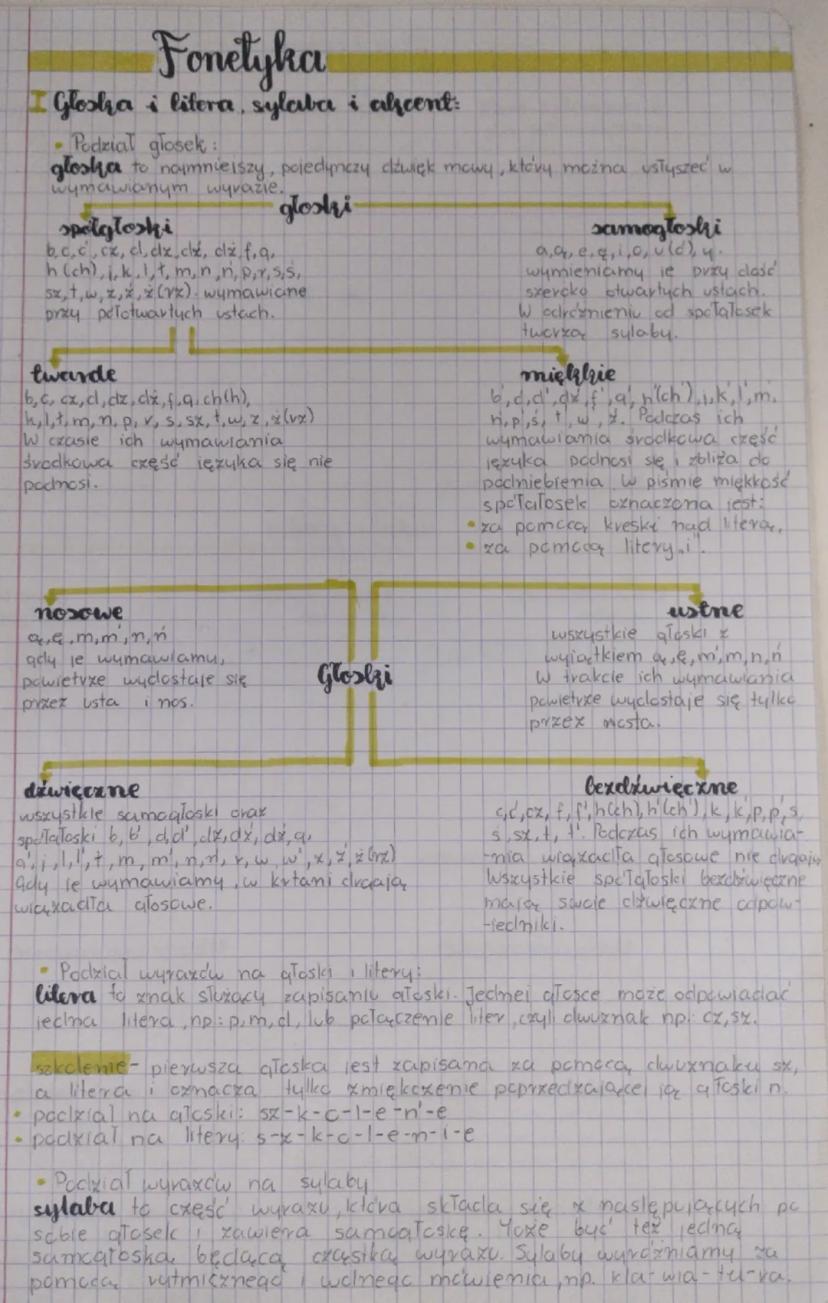 Fonetyka
I Głoska i litera, sylaba i akcent:
• Podział głosek:
głoska to najmniejszy, pojedynczy dźwięk mowy, który można usłyszeć w
wymawianym wyrazie.
głoski
spółgłoski
b, c, ć, cz, d, dz, dź, dż, f, g,
h (ch), j, k, l, ł, m, n, ń, p, r, s, ś,
sz, t, w, z, ź, ż (rz). wymawiane
przy półotwartych ustach.
samogłoski
a, ą, e, ę, i, o, u (ó), y.
wymieniamy je przy dość
szeroko otwartych ustach.
W odróżnieniu od spółgłosek
tworzą sylaby.
twarde
b, c, cz, d, dz, dż, f, g, ch(h),
k, l, ł, m, n, p, r, s, sz, t, w, z, ż (rz)
W czasie ich wymawiania
środkowa część języka się nie
podnosi.
miękkie
b', ć, d', dź, f', g', h'(ch'), j, k', l', m',
ń, p', ś, t', w', ź. Podczas ich
wymawiania środkowa część
języka podnosi się i zbliża do
podniebienia. W piśmie miękkość
spółgłosek oznaczona jest:
• za pomocą kreski nad literą,
• za pomocą litery „i".
nosowe
ą, ę, m, m', n, ń
gdy je wymawiamy,
powietrze wydostaje się
przez usta i nos.
Głoski
ustne
wszystkie głoski z
wyjątkiem ą, ę, m', m, n, ń
W trakcie ich wymawiania
powietrze wydostaje się tylko
przez usta.
dźwięczne
wszystkie samogłoski oraz
spółgłoski b, b', d, d', dz, dź, dż, g,
g', j, l, l', ł, m, m', n, ń, r, w, w', z, ź, ż (rz)
Gdy je wymawiamy, w krtani drgają
wiązadła głosowe.
bezdźwięczne
c, ć, cz, f, f', h(ch), h'(ch'), k, k', p, p', s,
ś, sz, t, t'. Podczas ich wymawia-
-nia wiązadła głosowe nie drgają
Wszystkie spółgłoski bezdźwięczne
mają swoje dźwięczne odpow-
-iedniki.
• Podział wyrazów na głoski i litery:
litera to znak służący zapisaniu głoski. Jednej głosce może odpowiadać
jedna litera, np: p, m, d, lub połączenie liter, czyli dwuznak np: cz, sz.
szkolenie - pierwsza głoska jest zapisana za pomocą dwuznaku sz,
a litera i oznacza tylko zmiękczenie poprzedzającej ją głoski n.
• podział na głoski: sz-k-o-l-e-n'-e
• podział na litery: s-z-k-o-l-e-n-i-e
• Podział wyrazów na sylaby
sylaba to część wyrazu, która składa się z następujących po
sobie głosek i zawiera samogłoskę. Może być też jedną
samogłoską będącą cząstką wyrazu. Sylaby wyróżniamy za
pomocą rytmicznego i wolnego mówienia, np. kla-wia-tu-ra.